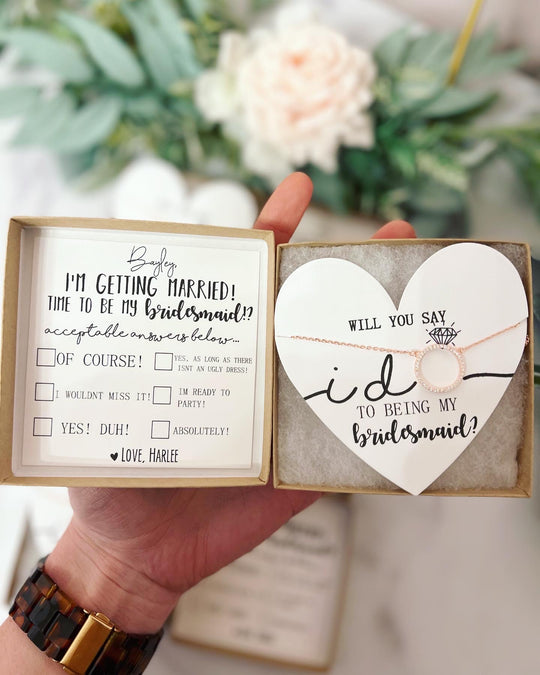 Bayley,
I'M GETTING MARRIED!
TIME TO BE MY bridesmaid!?
acceptable answers below...
OF COURSE!
YES, AS LONG AS THERE
ISNT AN UGLY DRESS!
I WOULDNT MISS IT!
IM READY TO
PARTY!
YES! DUH!
ABSOLUTELY!
LOVE, HARLEE
WILL YOU SAY
id
TO BEING MY
bridesmaid?